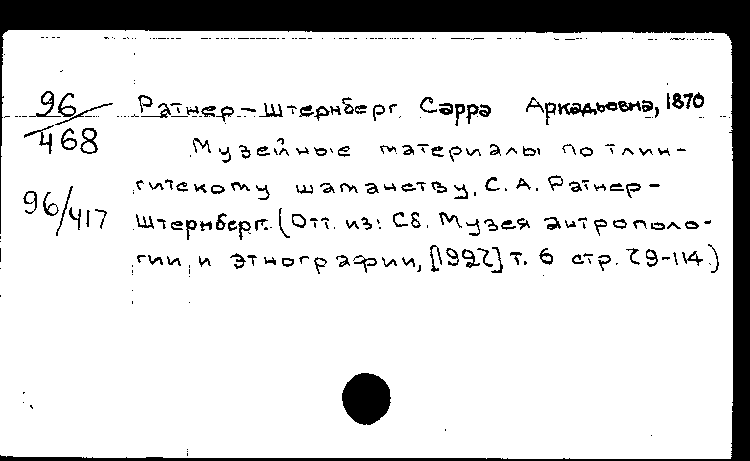 96/468 Ратнер-Штернберг Сарра Аркадьевна, 1870
Музейные материалы по тлин-
гитскому шаманству, С. А. Ратнер-
96/417 Штернберг. (Отт. из: Сб. Музея антрополо-
гии и этнографии, [1927] т. 6 стр. 79-114.)